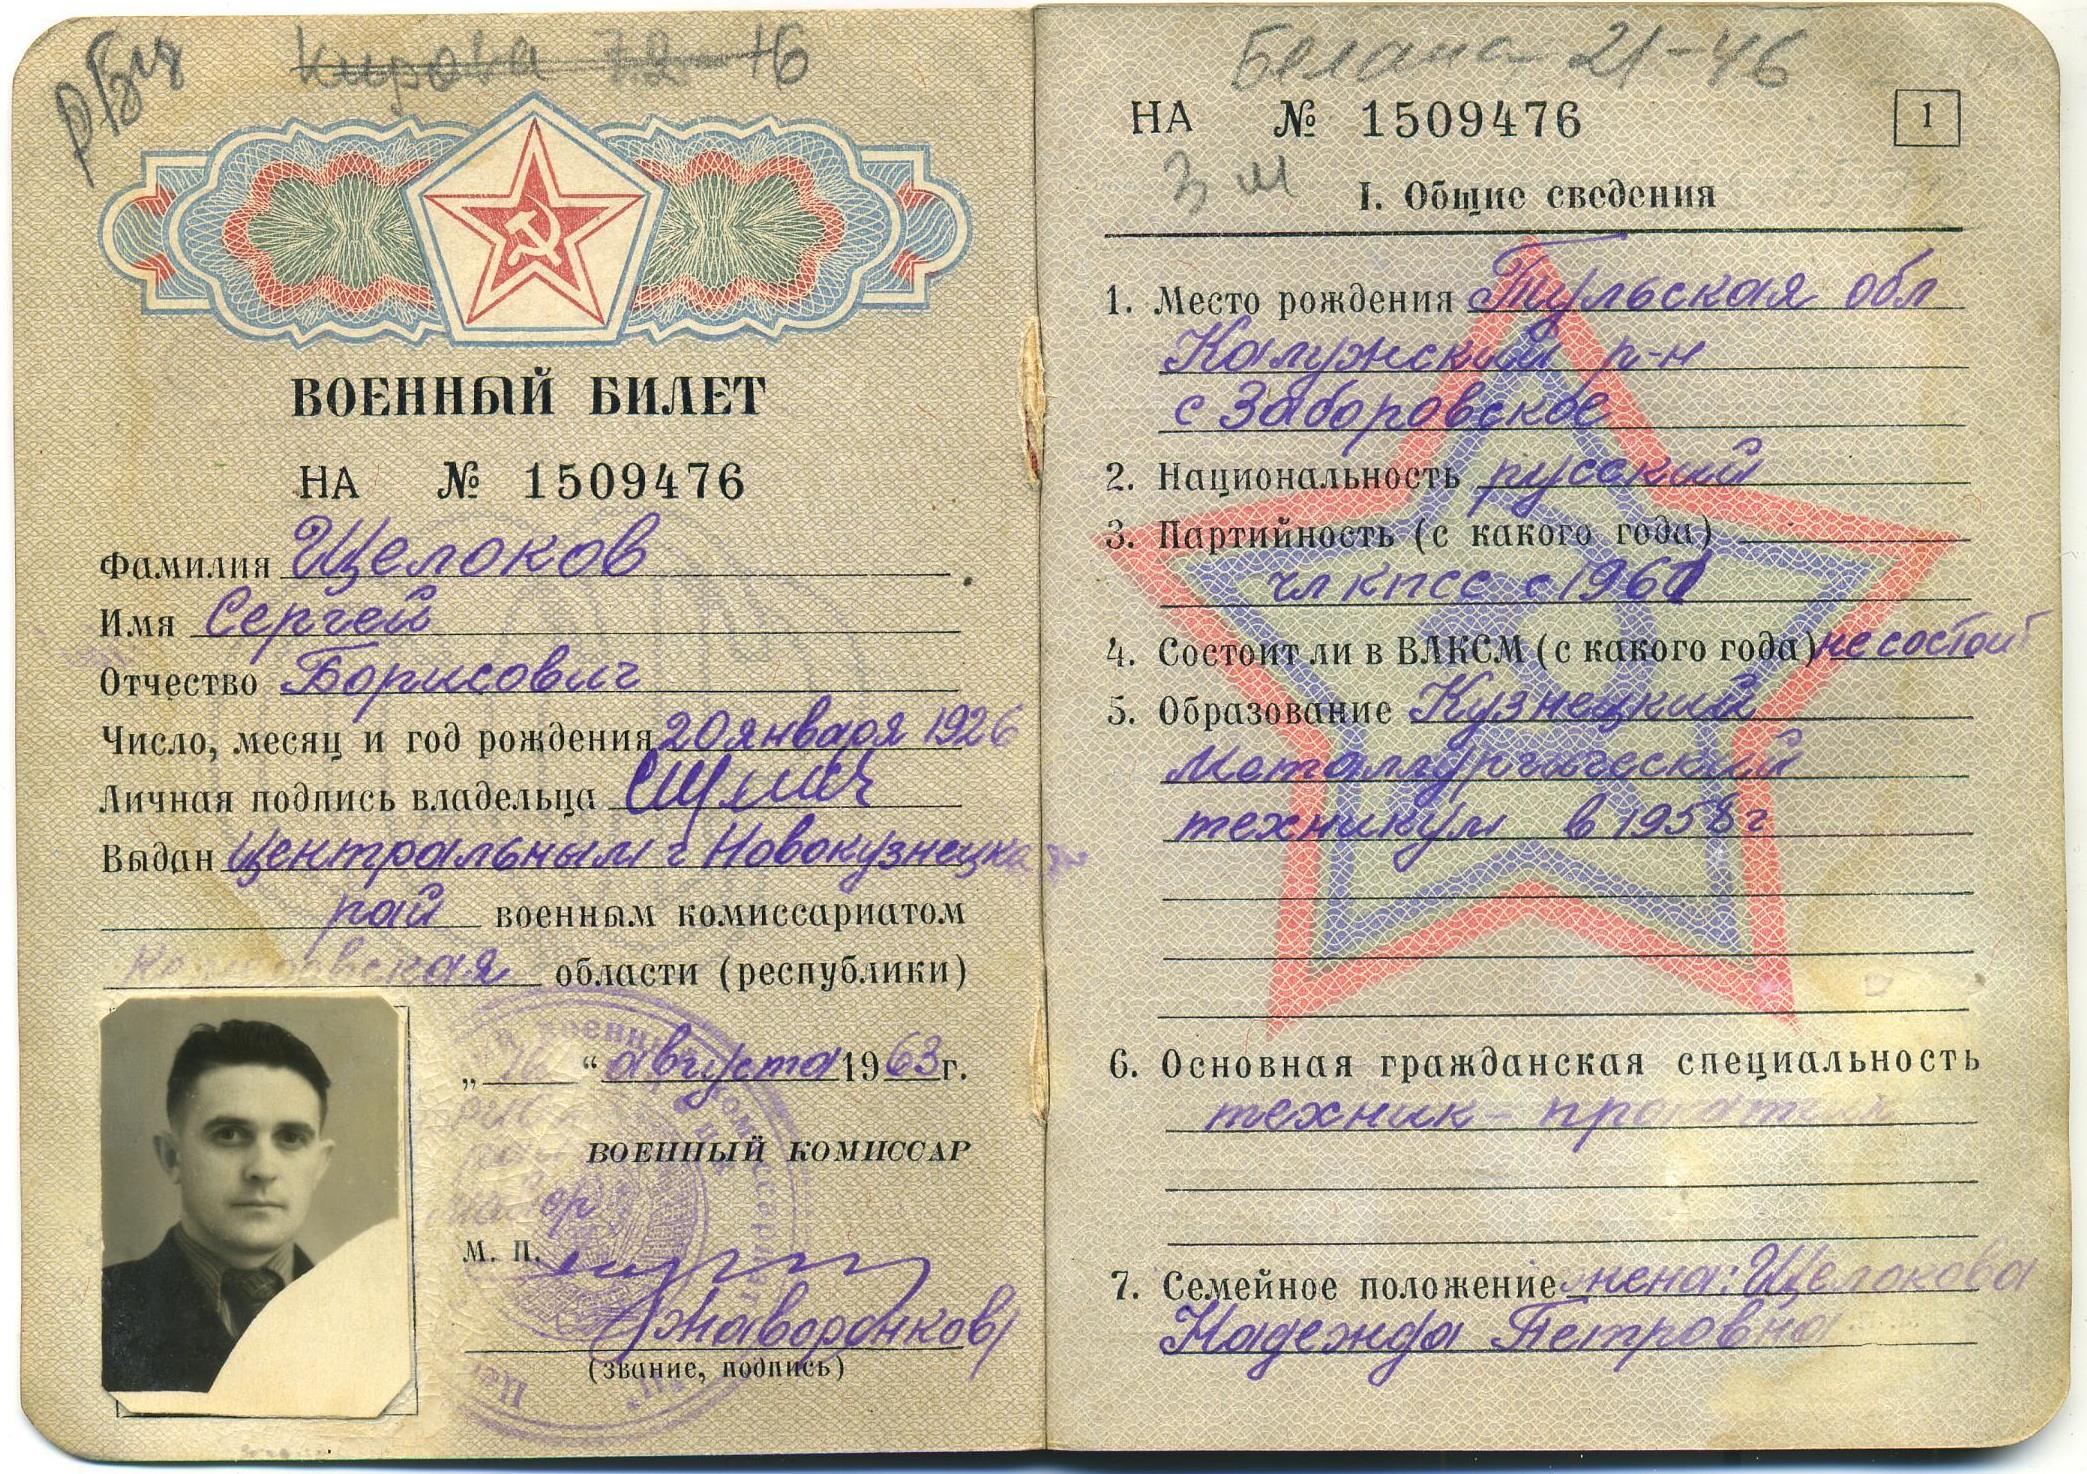 Кирова 72-16
ВОЕННЫЙ БИЛЕТ
НА № 1509476
Фамилия Щелоков
Имя Сергей
Отчество Борисович
Число, месяц и год рождения 20 января 1926
Личная подпись владельца
Выдан Центральным г Новокузнецка
рай военным комиссариатом
Кемеровская области (республики)
„16“ августа 1963 г.
ВОЕННЫЙ КОМИССАР
майор
М. П.
/Жаворонков/
(звание, подпись)
Белана 21-46
НА № 1509476
1
3 м
I. Общие сведения
1. Место рождения Тульская обл
Калужский р-н
с Заборовское
2. Национальность русский
3. Партийность (с какого года)
чл КПСС с 1961
4. Состоит ли в ВЛКСМ (с какого года) не состоит
5. Образование Кузнецкий
металлургический
техникум в 1958 г
6. Основная гражданская специальность
техник-прокатчик
7. Семейное положение жена: Щелокова
Надежда Петровна